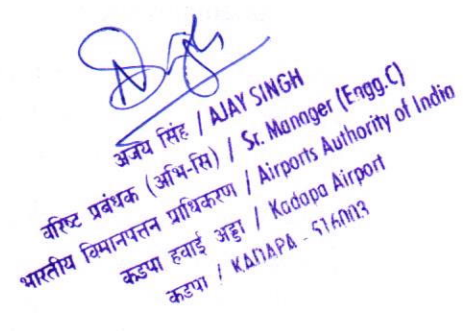 अजय सिंह / AJAY SINGH
वरिष्ट प्रबंधक (अभि-सि) / Sr. Manager (Engg.C)
भारतीय विमानपत्तन प्राधिकरण / Airports Authority of India
कडपा हवाई अड्डा / Kadapa Airport
कडपा / KADAPA - 516003